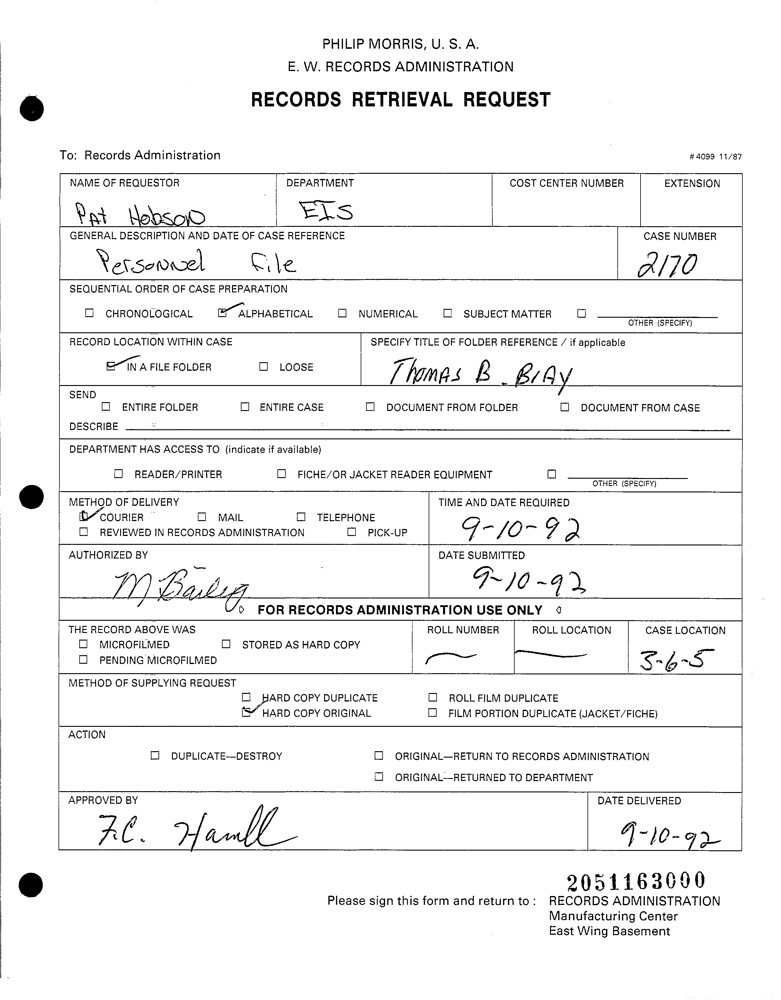 PHILIP MORRIS, U. S. A.
E. W. RECORDS ADMINISTRATION
RECORDS RETRIEVAL REQUEST
To: Records Administration # 4099 11/87
NAME OF REQUESTOR DEPARTMENT COST CENTER NUMBER EXTENSION
Pat Hobson EIS
GENERAL DESCRIPTION AND DATE OF CASE REFERENCE CASE NUMBER
Personnel File 2170
SEQUENTIAL ORDER OF CASE PREPARATION
☐ CHRONOLOGICAL ☑ ALPHABETICAL ☐ NUMERICAL ☐ SUBJECT MATTER ☐
OTHER (SPECIFY)
RECORD LOCATION WITHIN CASE SPECIFY TITLE OF FOLDER REFERENCE / if applicable
☑ IN A FILE FOLDER ☐ LOOSE Thomas B. Bray
SEND
☐ ENTIRE FOLDER ☐ ENTIRE CASE ☐ DOCUMENT FROM FOLDER ☐ DOCUMENT FROM CASE
DESCRIBE
DEPARTMENT HAS ACCESS TO (indicate if available)
☐ READER/PRINTER ☐ FICHE/OR JACKET READER EQUIPMENT ☐
OTHER (SPECIFY)
METHOD OF DELIVERY TIME AND DATE REQUIRED
☑ COURIER ☐ MAIL ☐ TELEPHONE 9-10-92
☐ REVIEWED IN RECORDS ADMINISTRATION ☐ PICK-UP
AUTHORIZED BY DATE SUBMITTED
M Bailey 9-10-92
FOR RECORDS ADMINISTRATION USE ONLY
THE RECORD ABOVE WAS ROLL NUMBER ROLL LOCATION CASE LOCATION
☐ MICROFILMED ☐ STORED AS HARD COPY
☐ PENDING MICROFILMED 3-6-5
METHOD OF SUPPLYING REQUEST
☐ HARD COPY DUPLICATE ☐ ROLL FILM DUPLICATE
☑ HARD COPY ORIGINAL ☐ FILM PORTION DUPLICATE (JACKET/FICHE)
ACTION
☐ DUPLICATE—DESTROY ☐ ORIGINAL—RETURN TO RECORDS ADMINISTRATION
☐ ORIGINAL—RETURNED TO DEPARTMENT
APPROVED BY DATE DELIVERED
F.C. Hamll 9-10-92
2051163000
Please sign this form and return to : RECORDS ADMINISTRATION
Manufacturing Center
East Wing Basement